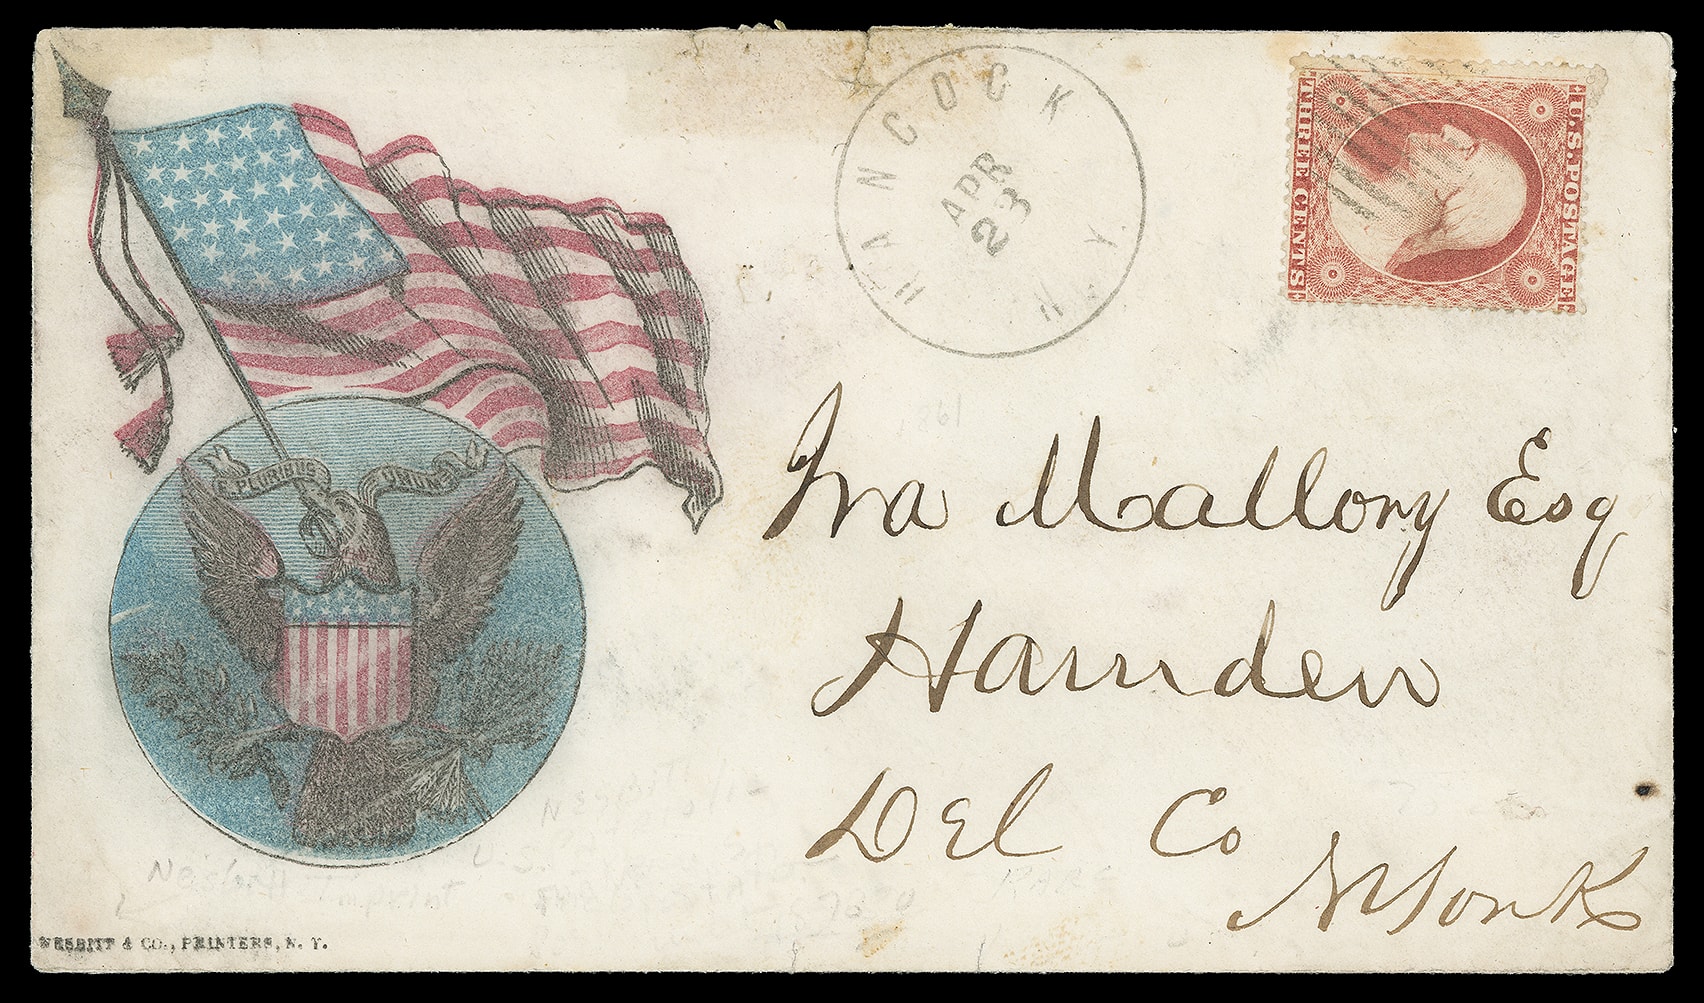 HANCOCK N.Y.
APR
23
U.S. POSTAGE
THREE CENTS
E PLURIBUS UNUM
1861
Ira Mallory Esq
Hamden
Del Co
N York
RARE
Imprint
NESBITT & CO., PRINTERS, N. Y.